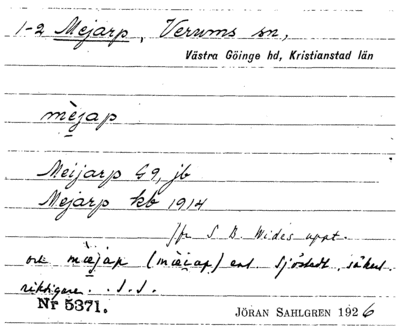 1-2 Mejarp, Verums sn,
Västra Göinge hd, Kristianstad län
mèjap
Meijarp 69, jb
Mejarp kb 1914
Jfr S D. Wides uppt.
mæ̀jap (mæ̀iap) enl. Sjöstedt, säkert
riktigare. J.S.
Nr 5371.
JÖRAN SAHLGREN 1926